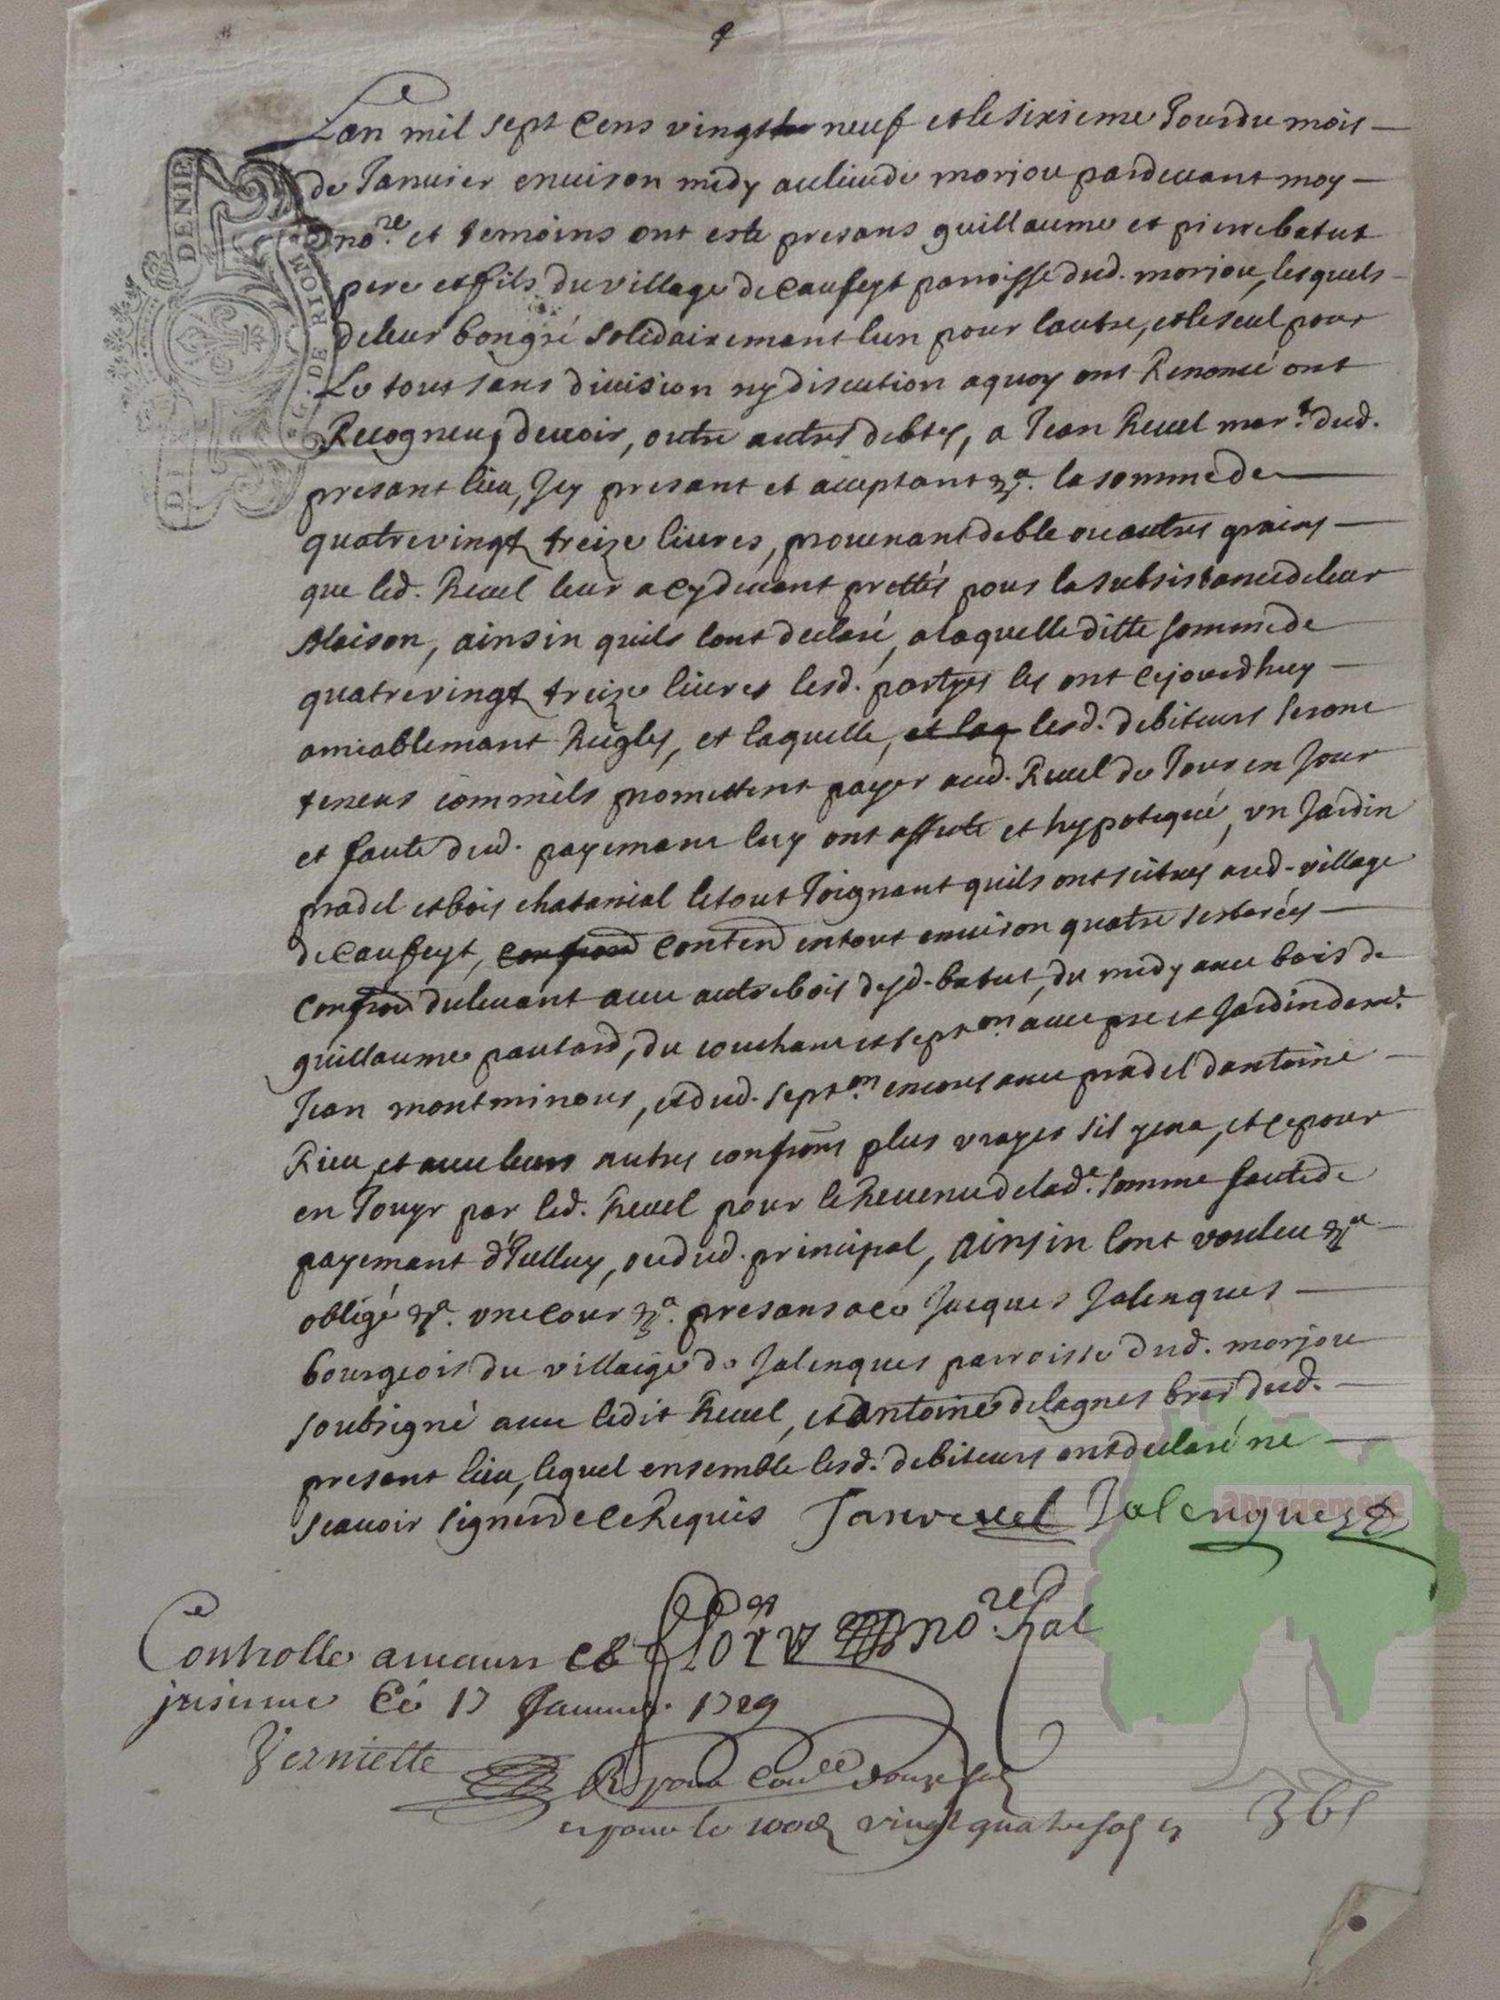 Lan mil sept cens vingt neuf et le sixieme Jour du mois
de Janvier environ midy au lieu de morjou pardevant moy
no.re et temoins ont este presans guillaume et pierre batut
pere et fils du village de Caufeyt paroisse dud. morjou, lesquels
de leur bon gré solidairemant lun pour lautre, et le seul pour
Le tout sans division ny discution a quoy ont Renoncé ont
Recogneu, devoir, outre autres debtes, a Jean Revel mar.t dud.
presant lieu, Jcy presant et aceptant &a. la somme de
quatrevingt treize livres, provenant de ble ou autres grains
que led. Revel leur a cydevant prettés pour la subsistance de leur
Maison, ainsin quils lont declaré, a laquelle ditte somme de
quatrevingt treize livres lesd. partyes les ont cejourdhuy
amiablemant Reigles, et laquelle, et laq lesd. debiteurs seront
teneus comm'ils promettent payer aud. Revel de Jour en Jour
et faute dud. payemant luy ont affecté et hypotequé, un Jardin
pradel et bois chatanial le tout Joignant quils ont scitues aud. village
de Caufeyt, confrond contend en tout environ quatre sesterées
Confrond du levant avec autre bois desd. batut, du midy avec bois de
guillaume pautard, du couchant et sept.on avec pre et Jardin de m.e
Jean montminous, et dud. sept.on encore avec pradel dantoine
Rieu et avec leurs autres confrons plus vrayes sil y en a, et ce pour
en Jouyr par led. Revel pour le Revenu de lad.e somme faute de
payemant d'Jcelluy, ou dud. principal, ainsin lont vouleu &a
obligé &a. une cour &a. presans a ce Jacques Jalenques
bourgeois du villaige de Jalenques parroisse dud. morjou
soubsigné avec ledit Revel, et antoine delagnes bres dud.
presant lieu, lequel ensemble lesd. debiteurs ont declaré ne
scavoir signer de ce Requis Jan revel Jalenques
no.re Ral
Controlle a maurs
ce 17 Janvier 1729
Verniette
R pour Con.lle douze sols
et pour le 100e vingt quatre sols
DENIE
G. DE RIOM
aprogemere